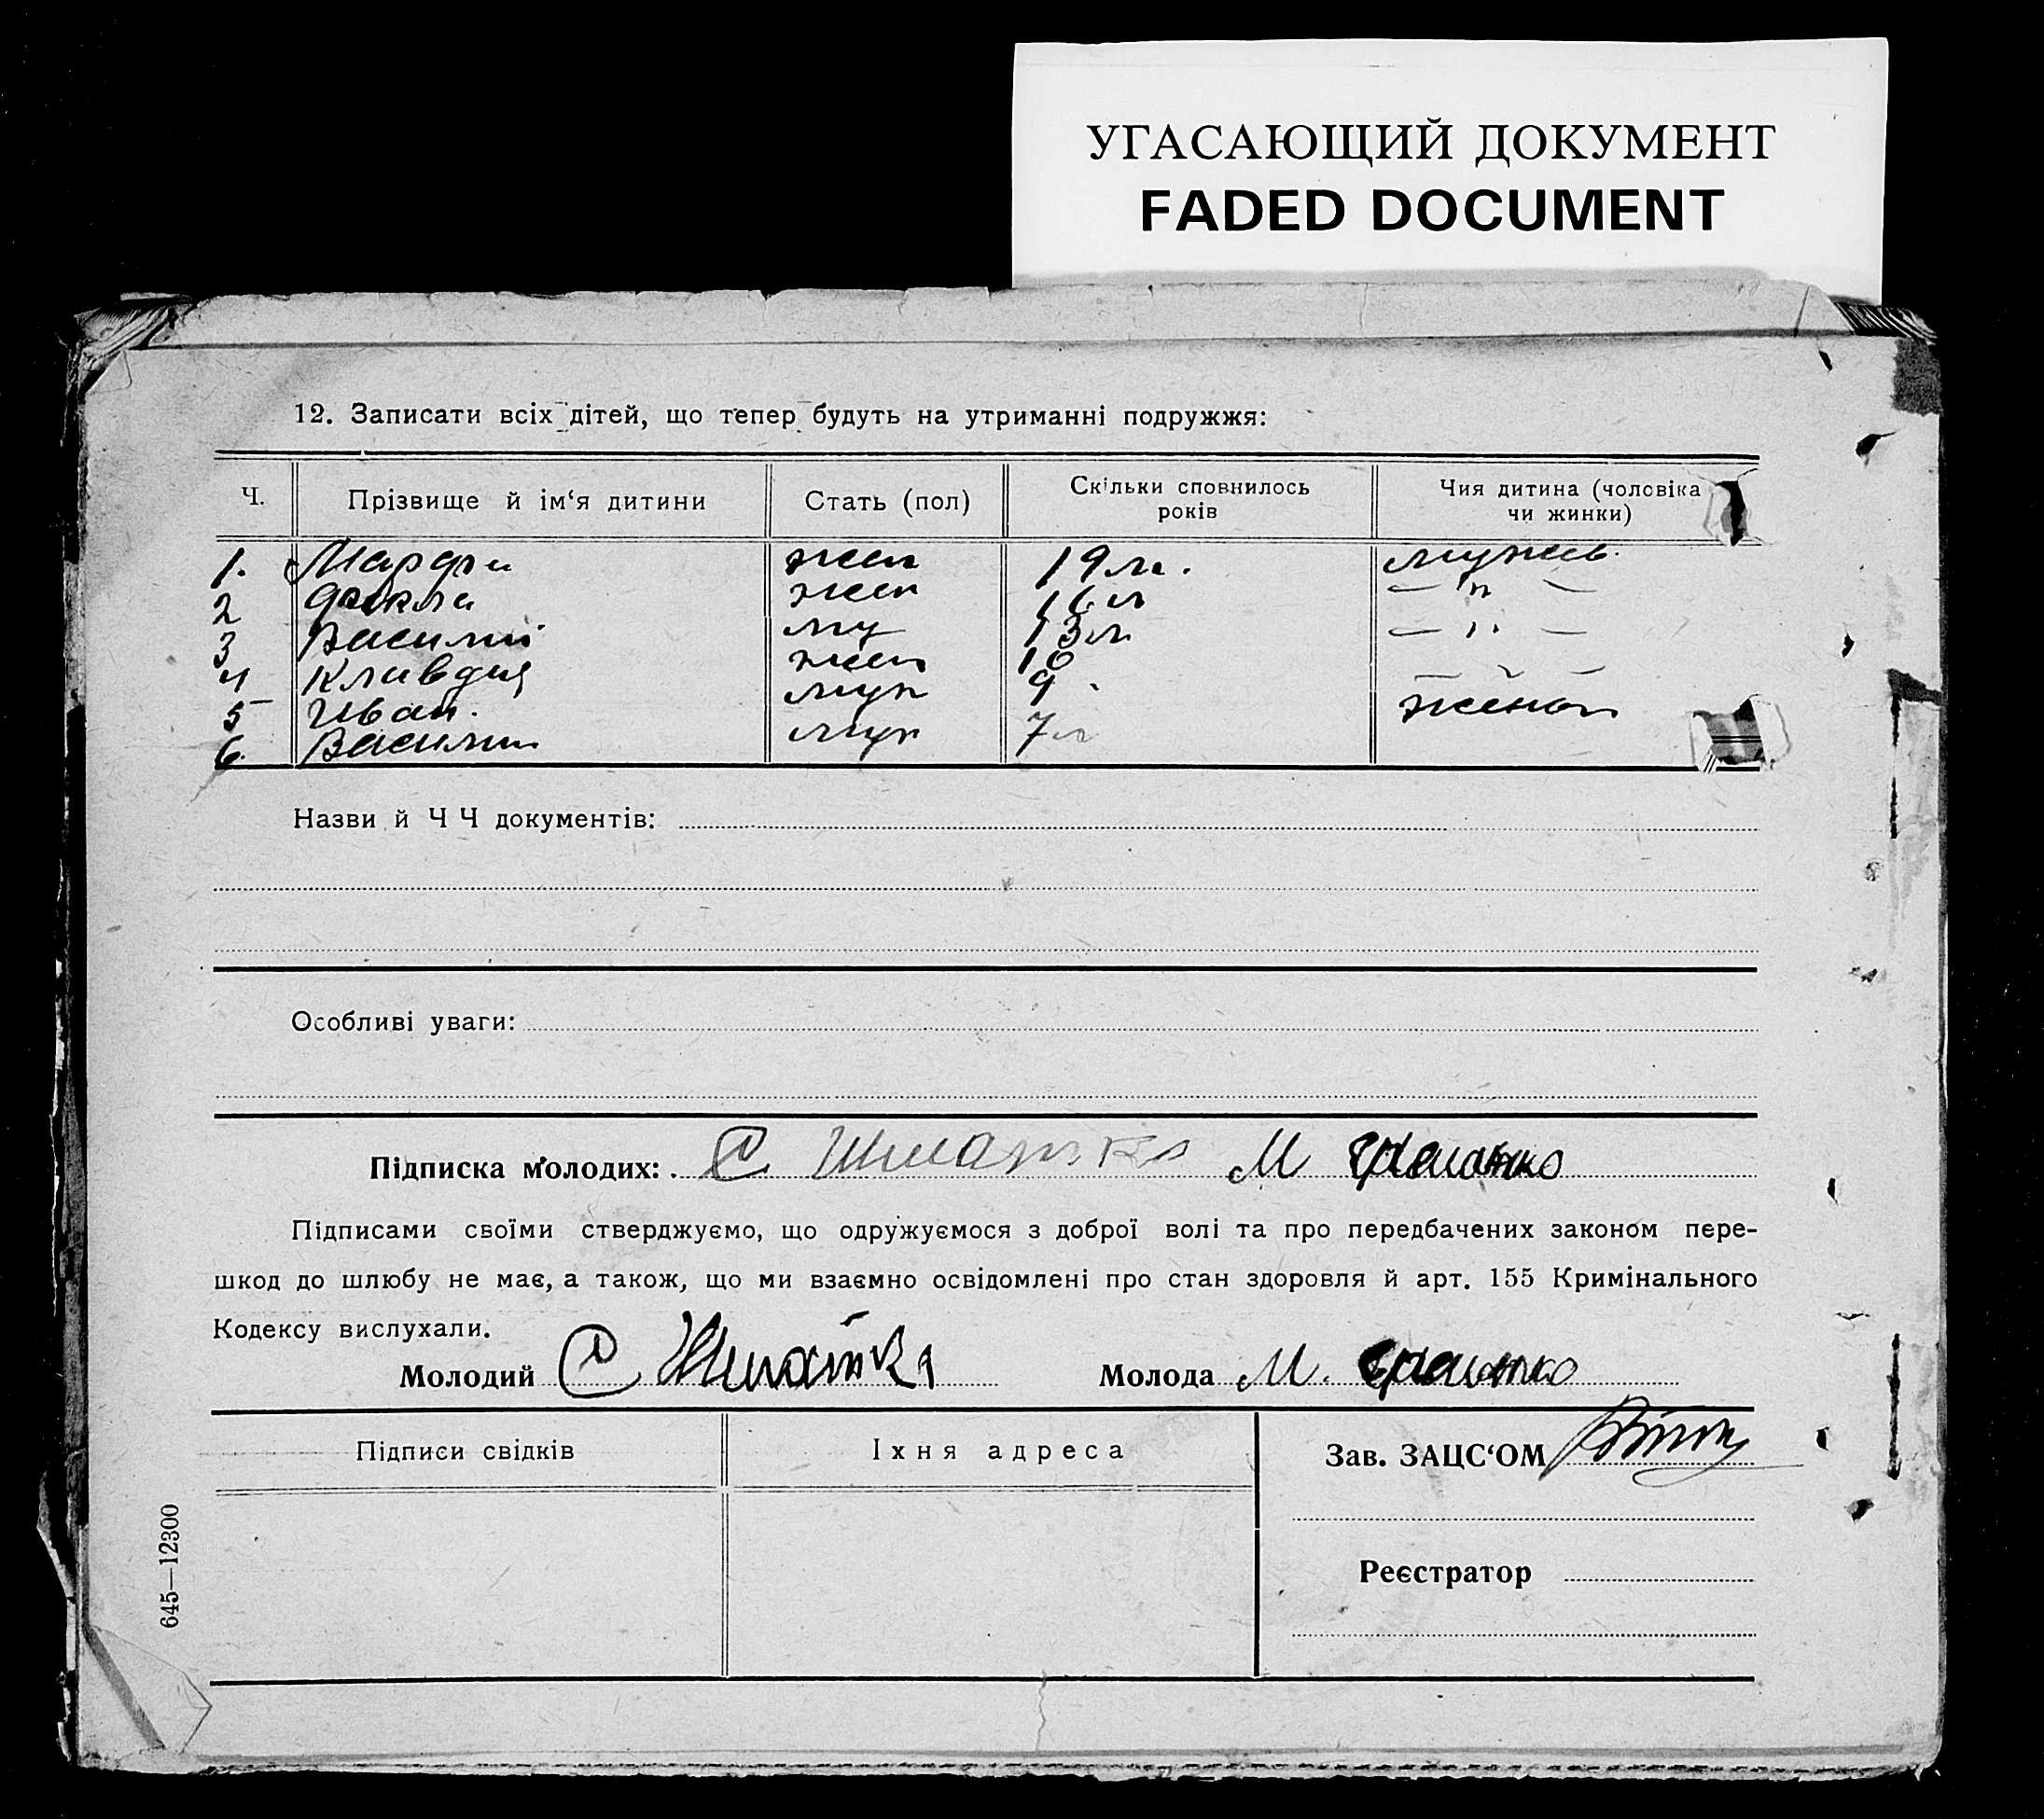 УГАСАЮЩИЙ ДОКУМЕНТ
FADED DOCUMENT
12. Записати всіх дітей, що тепер будуть на утриманні подружжя:
Ч. Прізвище й ім‘я дитини Стать (пол) Скільки сповнилось років Чия дитина (чоловіка чи жинки)
1. Марфа жен 19 л.
2 Фекла жен 16 л — " —
3 Василий му 13 л — " —
4 Клавдия жен 10
5 Иван. муж 9
6. Василий муж 7 л
Назви й Ч Ч документів:
Особливі уваги:
Підписка молодих: С М
Підписами своїми стверджуємо, що одружуємося з доброї волі та про передбачених законом пере-
шкод до шлюбу не має, а також, що ми взаємно освідомлені про стан здоровля й арт. 155 Кримінального
Кодексу вислухали.
Молодий С Молода М.
Підписи свідків Їхня адреса Зав. ЗАЦС‘ОМ
Реєстратор
645—12300